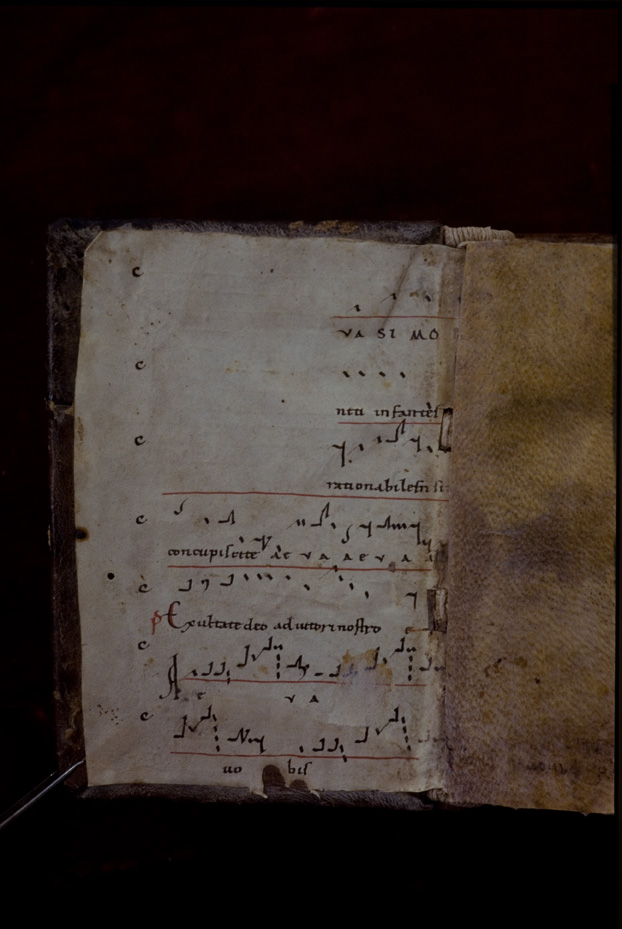 c
VA SI MO
c
nıtı infantes
c
rationabilesn si
c
concupiscite Ae v A A e v A A
c
Exultate deo adiutori nostro
c
A e v A
c
uo bis